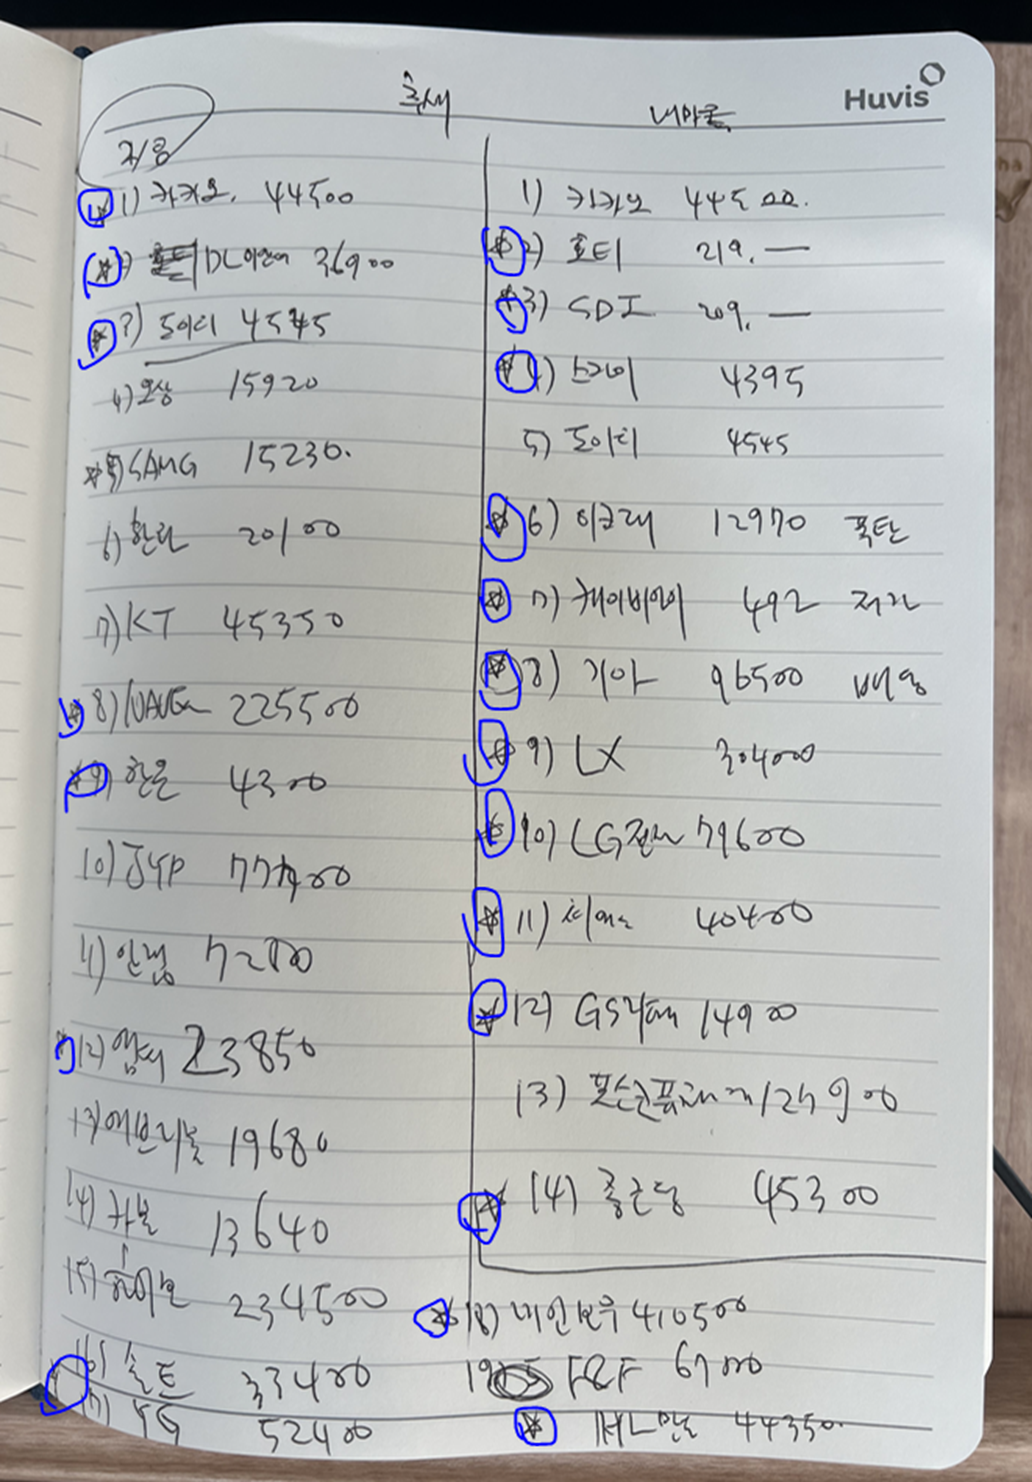 Huvis
추세
내마음
지용
1) 카카오. 44500
DL이앤씨 36900
?) 도이치 4545
4) 오상 15920
5) SAMG 15230.
6) 한라 20100
7) KT 45350
8) NAVER 225500
9) 한온 4300
10) JYP 77400
11) 안랩 72100
12) 엠씨 23850
13) 에브리봇 19680
14) 카본 13640
15) 하이브 234500
16) 솔트 33400
17) YG 52400
1) 카카오 44500.
2) 호티 219.—
3) SDI 209.—
4) 4395
5) 도이치 4545
6) 이크레 12970 폭탄
7) 케이비아이 492 저가
8) 기아 96500 배당
9) LX 30400
10) LG전자 79600
11) 40400
12) GS리테 14900
13) 포스코퓨처 124900
14) 종근당 45300
18) 410500
19) F&F 67100
44350.